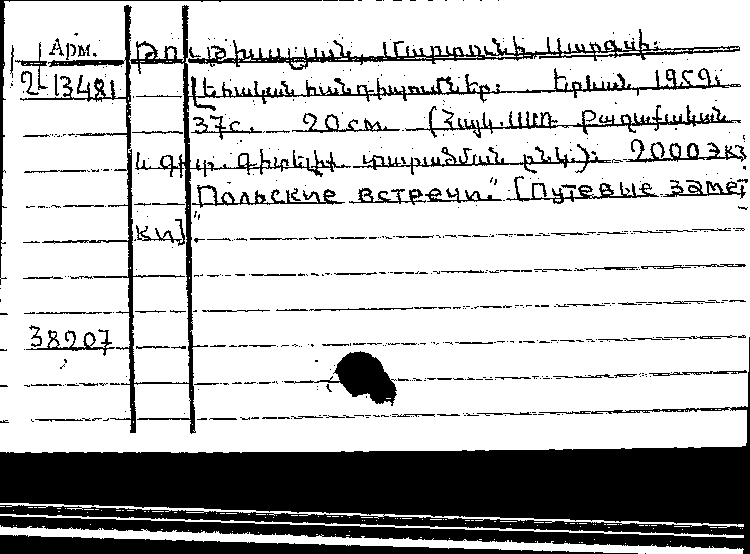 Арм.
2-13481
Մարտունի Սարգսի:
Լեհական հանդիպումներ: Երևան, 1959:
37с. 20см. (Հայկ.ՍՍՌ քաղաքական
և գիտ. գիտելիք. տարածման ընկ.): 2000 экз
Польские встречи." [Путевые замет
ки]."
38207